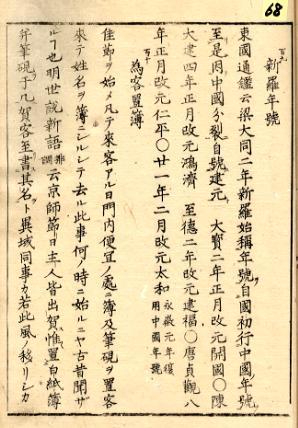 68
百九
新羅年號
東國通鑑云梁大同二年新羅始稱年號自國初行中國年號
至是因中國分裂自號建元 大寶二年正月改元開國○陳
大建四年正月改元鴻濟 至德二年改元建福○唐貞觀八
年正月改元仁平○廿一年二月改元太和 永徽元年復用中國年號
百十
為客置簿
佳節ヲ始メ凡テ來客アル日門內便宜ノ處ニ簿及筆硯ヲ置客
來テ姓名ヲ簿ニシルシテ去ル此事何ノ時ニ始ルニヤ古昔聞ザ
ルフ也明世說新語 排調 云京師節日主人皆出賀惟置白紙簿
幷筆硯于几賀客至書其名ト異域同事カ若此風ノ移リシカ